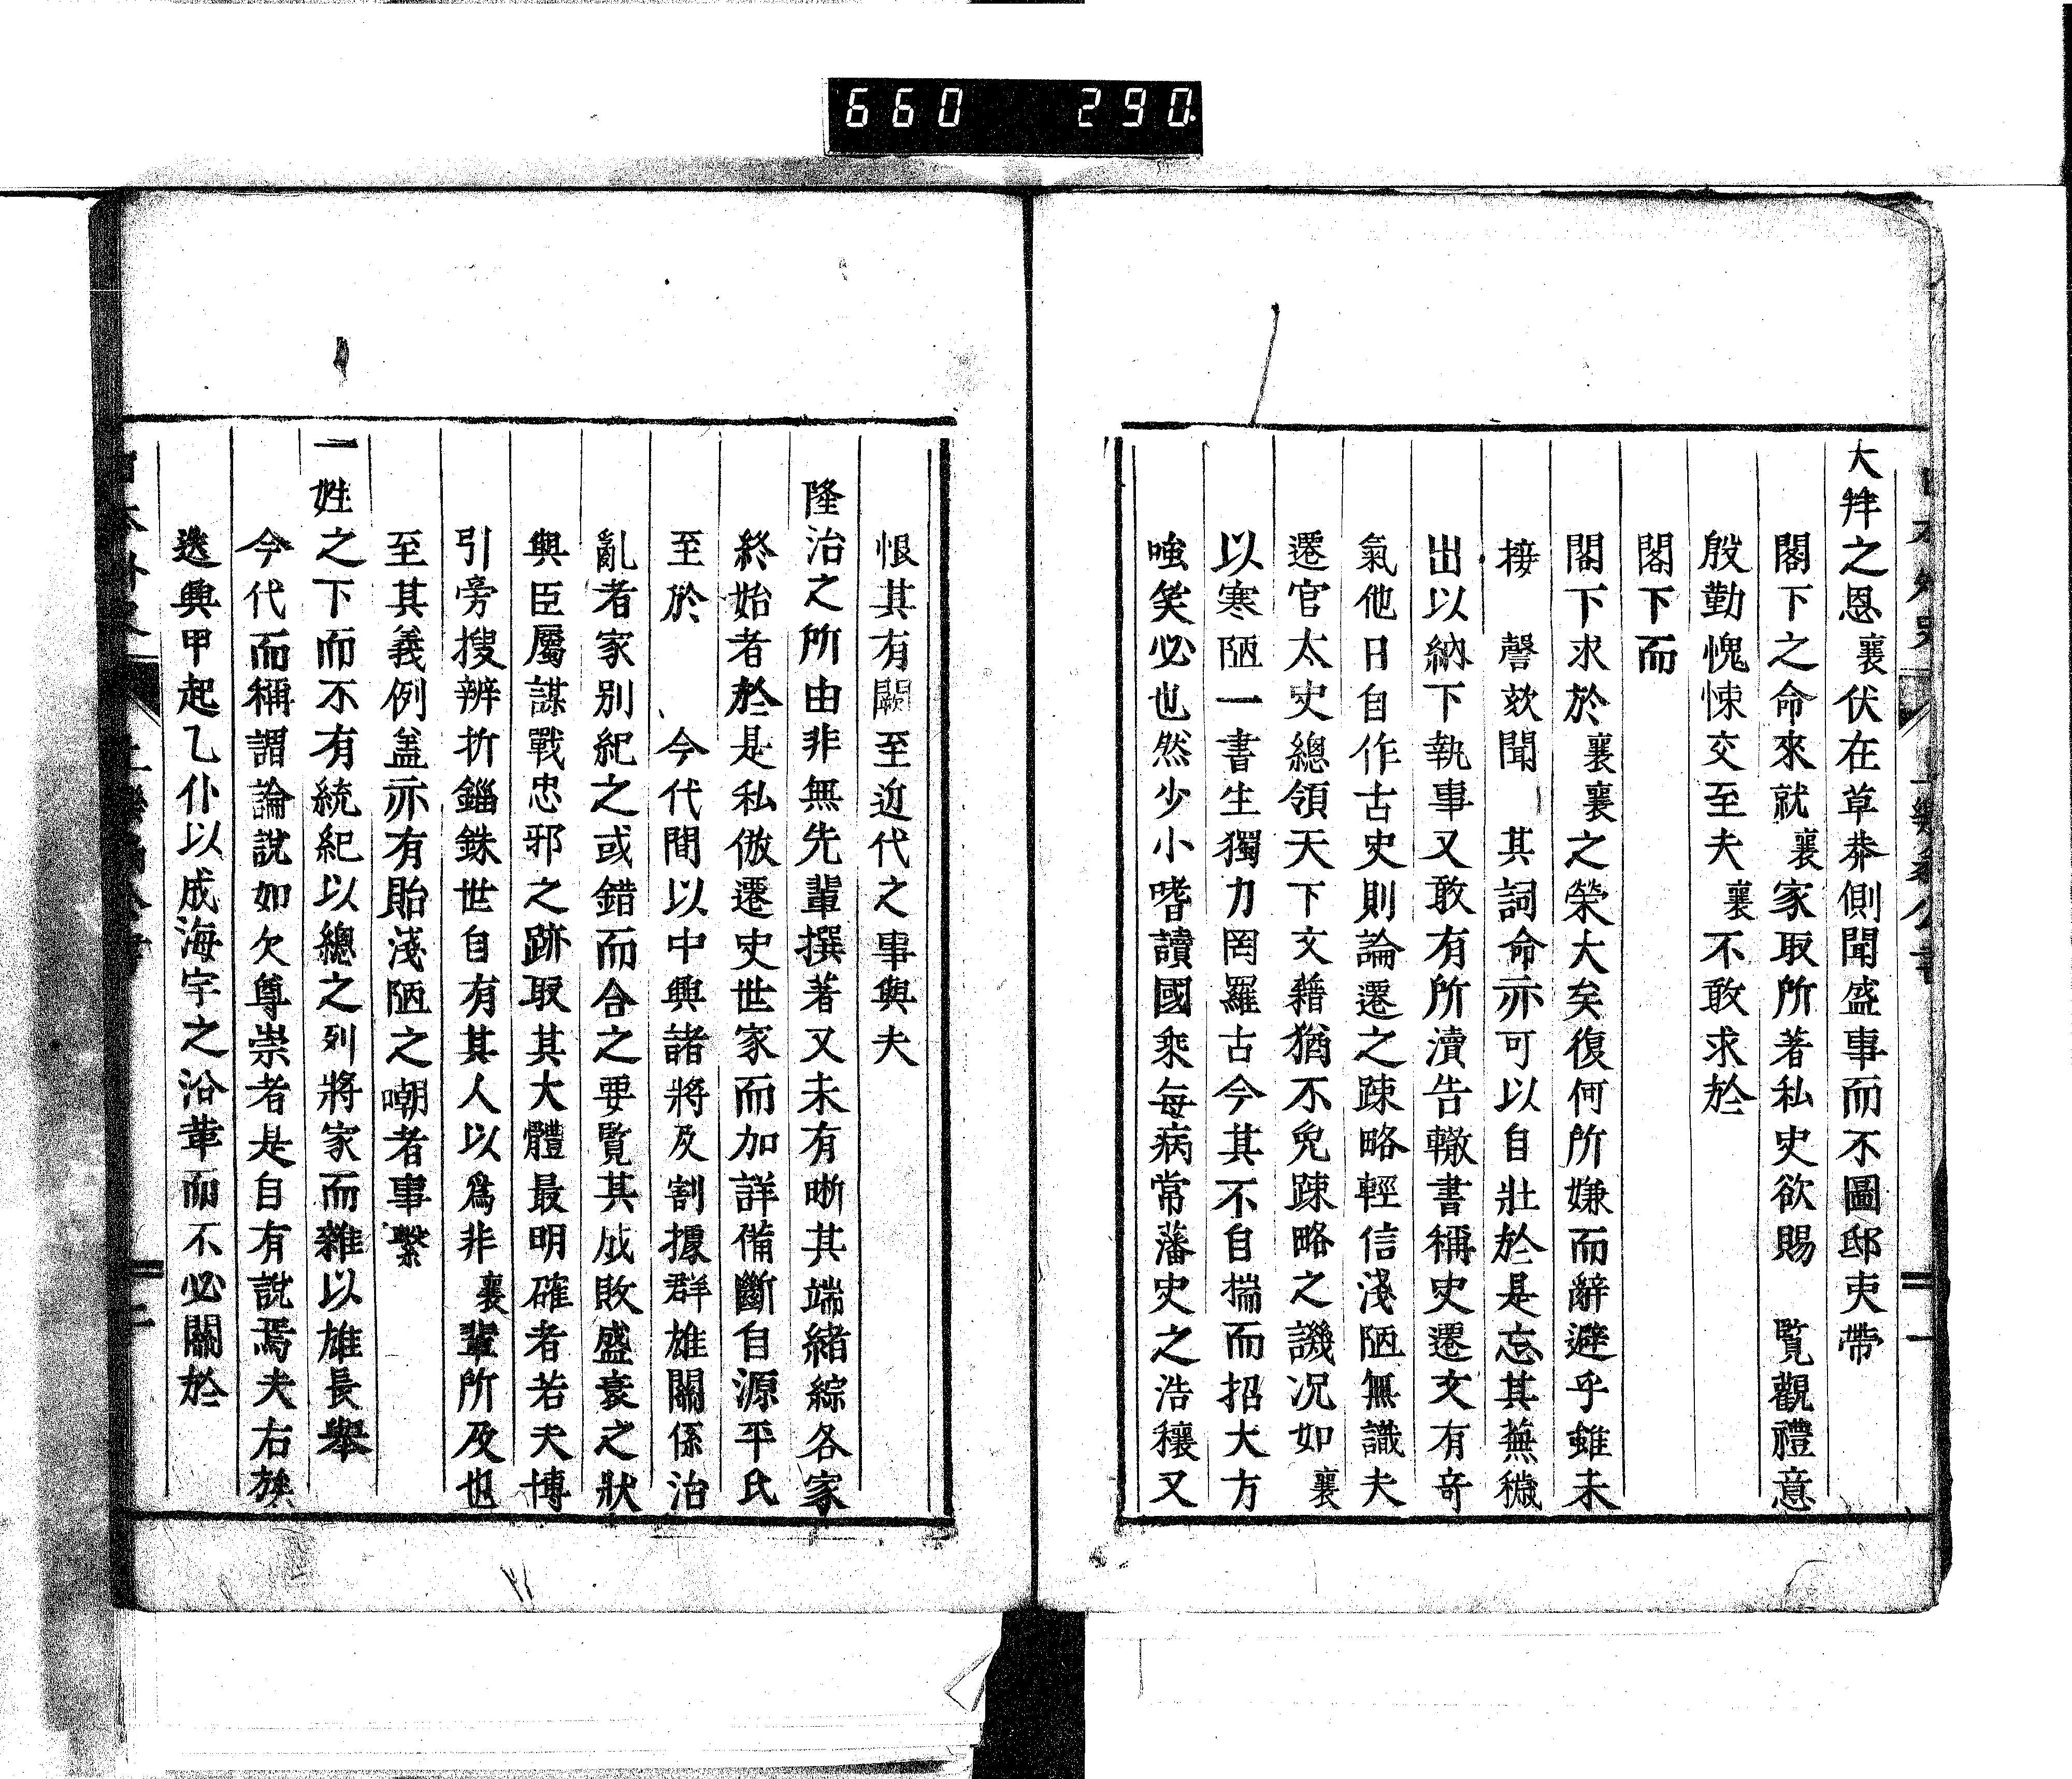 660 290.
大拜之恩襄伏在草莽側聞盛事而不圖邸吏帶
閣下之命來就襄家取所著私史欲賜 覽觀禮意
殷勤愧悚交至夫襄不敢求於
閣下而
閣下求於襄襄之榮大矣復何所嫌而辭避乎雖未
接 謦欬聞 其詞命亦可以自壯於是忘其蕪穢
出以納下執事又敢有所瀆告轍書稱史遷文有奇
氣他日自作古史則論遷之疎略輕信淺陋無識夫
遷官太史總領天下文籍猶不免疎略之譏况如襄
以寒陋一書生獨力罔羅古今其不自揣而招大方
嗤笑必也然少小嗜讀國乘每病常藩史之浩穰又
恨其有闕至近代之事與夫
隆治之所由非無先輩撰著又未有晰其端緒綜各家
終始者於是私倣遷史世家而加詳備斷自源平氏
至於 今代間以中興諸將及割據群雄關係治
亂者家别紀之或錯而合之要覽其成敗盛衰之狀
與臣屬謀戰忠邪之跡取其大體最明確者若夫博
引旁搜辨折錙銖世自有其人以爲非襄輩所及也
至其義例盖亦有貽淺陋之嘲者事繫
一姓之下而不有統紀以總之列將家而雜以雄長舉
今代而稱謂論說如欠尊崇者是自有說焉夫右族
迭興甲起乙仆以成海宇之沿革而不必關於